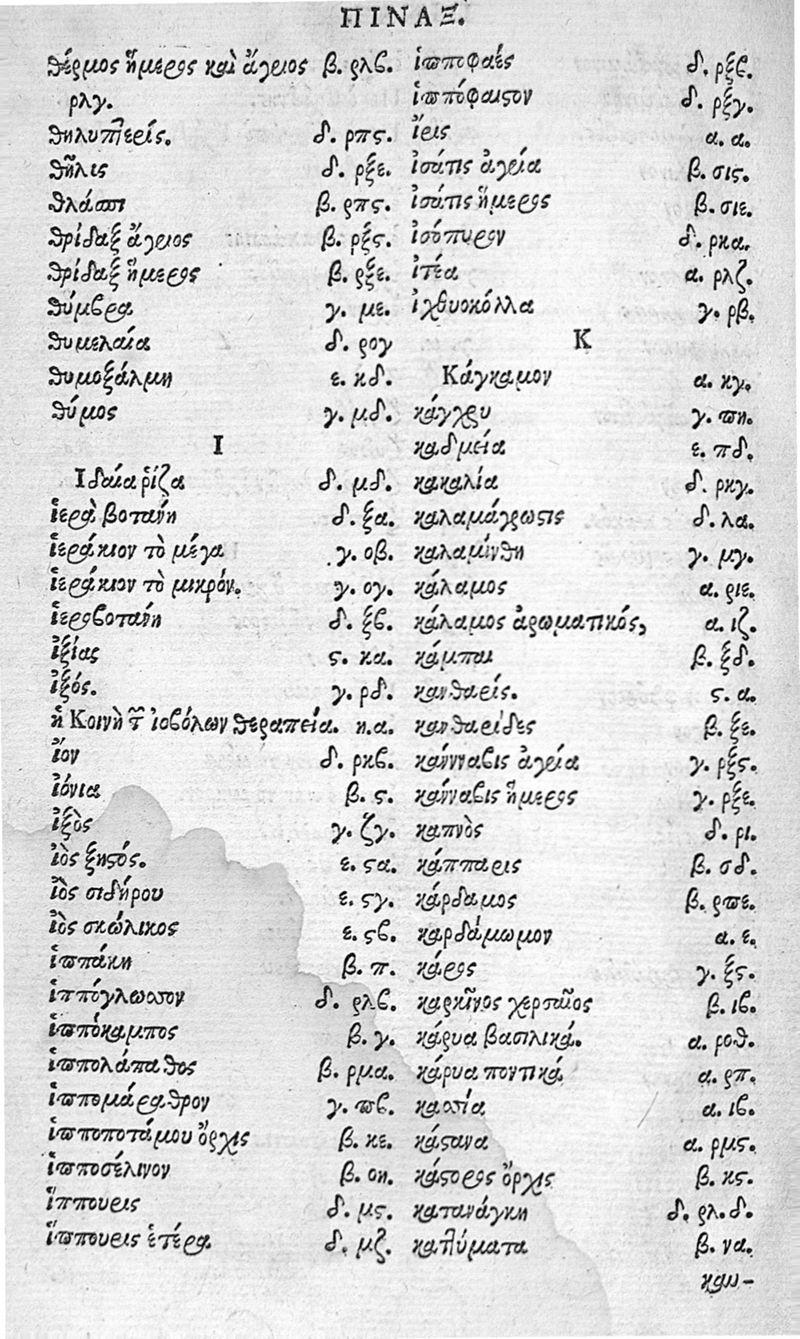 ΠΙΝΑΞ.
θέρμος ἥμερος καὶ ἄγριος β. ρλβ.
ρλγ.
θηλυπτερίς. δ. ρπς.
θῆλις δ. ρξε.
θλάσπι β. ρπς.
θρίδαξ ἄγριος β. ρξς.
θρίδαξ ἥμερος β. ρξε.
θύμβρα γ. με.
θυμελαία δ. ρογ
θυμοξάλμη ε. κδ.
θύμος γ. μδ.
Ι
Ιδαία ῥίζα δ. μδ.
ἱερὰ βοτανή δ. ξα.
ἱεράκιον τὸ μέγα γ. οβ.
ἱεράκιον τὸ μικρόν. γ. ογ.
ἱεροβοτανή δ. ξβ.
ἰξίας ς. κα.
ἰξός. γ. ρδ.
ἡ Κοινὴ τῶν ἰοβόλων θεραπεία. η.α.
ἴον δ. ρκβ.
ἰόνια β. ς.
ἰξὸς γ. ζγ.
ἰὸς ξηρός. ε. ϛα.
ἰὸς σιδήρου ε. ϛγ.
ἰὸς σκώλικος ε. ϛβ.
ἱππάκη β. π.
ἱππόγλωσσον δ. ρλβ.
ἱππόκαμπος β. γ.
ἱππολάπαθος β. ρμα.
ἱππομάραθρον γ. πβ.
ἱπποποτάμου ὄρχις β. κε.
ἱπποσέλινον β. οη.
ἵππουρις δ. μς.
ἵππουρις ἑτέρα δ. μζ.
ἱπποφαές δ. ρξβ.
ἱππόφαιστον δ. ρξγ.
ἴρις α. α.
ἰσάτις ἀγρία β. σις.
ἰσάτις ἥμερος β. σιε.
ἰσόπυρον δ. ρκα.
ἰτέα α. ρλζ.
ἰχθυοκόλλα γ. ρβ.
Κ
Κάγκαμον α. κγ.
κάγχρυ γ. πη.
καδμεία ε. πδ.
κακαλία δ. ρκγ.
καλαμάγρωστις δ. λα.
καλαμίνθη γ. μγ.
κάλαμος α. ριε.
κάλαμος ἀρωματικός, α. ιζ.
κάμπαι β. ξδ.
κανθαρίς. ς. α.
κανθαρίδες β. ξε.
κάνναβις ἀγρία γ. ρξς.
κάνναβις ἥμερος γ. ρξε.
καπνὸς δ. ρι.
κάππαρις β. σδ.
κάρδαμος β. ρπε.
καρδάμωμον α. ε.
κάρος γ. ξς.
καρκῖνος χερσαῖος β. ιβ.
κάρυα βασιλικά. α. ροθ.
κάρυα ποντικά α. ρπ.
κασσία α. ιβ.
κάστανα α. ρμς.
κάστορος ὄρχις β. κς.
κατανάγκη δ. ρλ.δ.
κατλύματα β. να.
καυ-